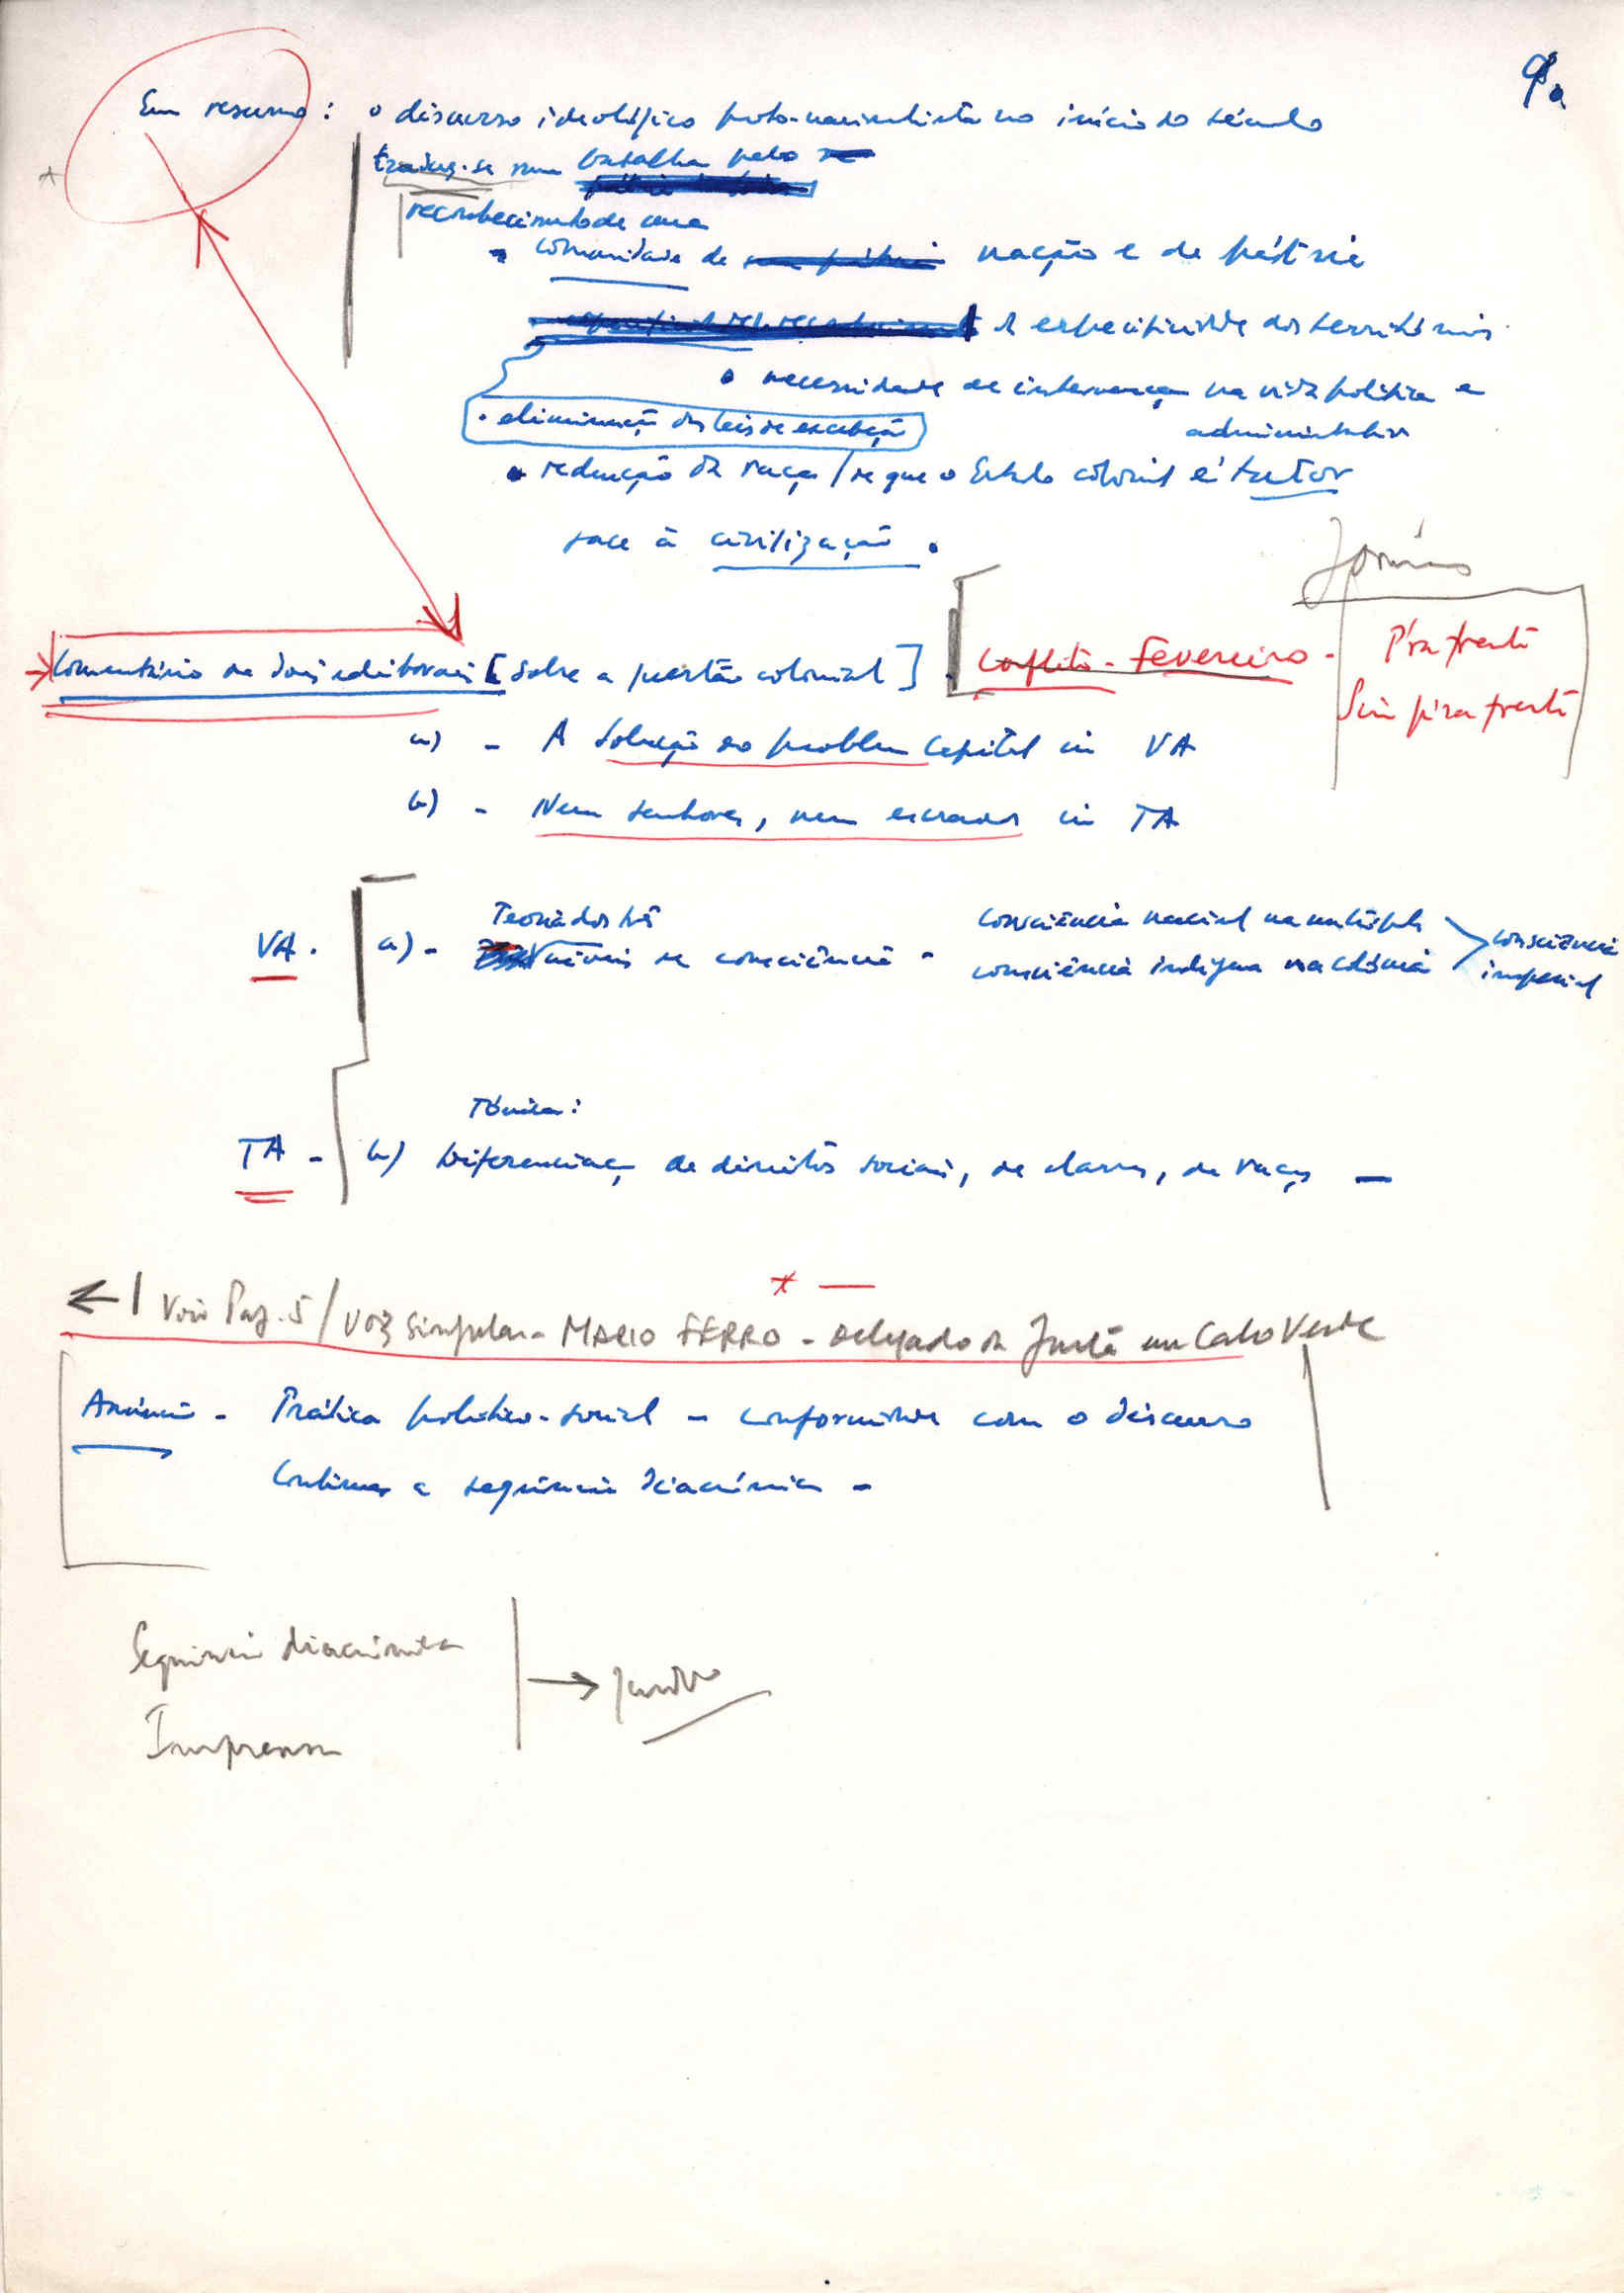 9a
Em resumo: o discurso ideológico proto-nacionalista no início do século
traduz-se numa batalha pelo
reconhecimento de uma
• comunidade de nação e de pátria
especificidade dos territórios
• necessidade de intervenção na vida política e
administrativa
• eliminação das leis de excepção
• redenção da raça / de que o Estado colonial é tutor
face à civilização.
Comentário de dois editoriais [sobre a questão colonial]
Conflito - Fevereiro -
P'ra frente
Sem p'ra frente
a) - A solução do problema capital in VA
b) - Nem senhores, nem escravos in TA
Teoria dos três
VA. a) - níveis de consciência - consciência nacional na metrópole
consciência indígena na colónia
consciência
imperial
Tónica:
TA - b) Diferenciação de direitos sociais, de classes, de raças —
* —
← | Voir Pag. 5 / Voz singular - MARIO FERRO - delegado da Junta em Cabo Verde
Anúncio - Prática político-social - conformidade com o discurso
Continuar a sequência diacrónica -
Sequência diacrónica
Imprensa
→